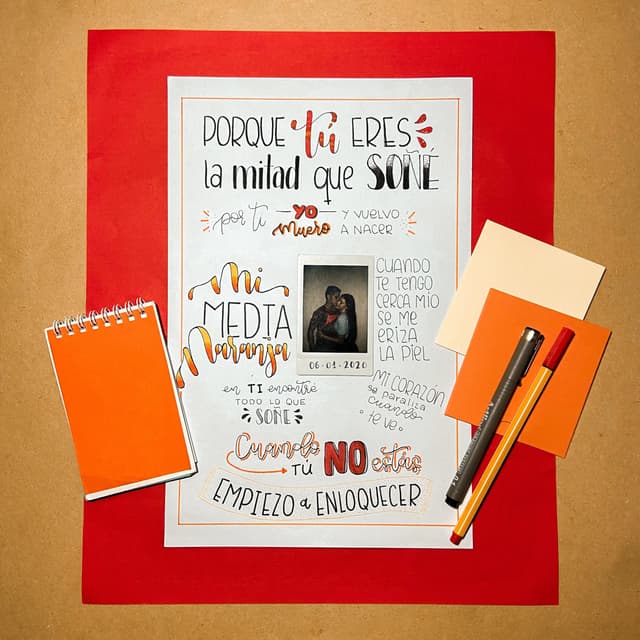 PORQUE tú ERES
la mitad que SOÑÉ
por ti YO Muero Y VUELVO A NACER
Mi
MEDIA
Naranja
CUANDO
TE TENGO
CERCA MIO
SE ME
ERIZA
LA PIEL
06·01·2020
en TI encontré
TODO LO QUE
SOÑÉ
MI CORAZÓN
se paraliza
cuando
·te ve·
Cuando
TÚ NO estás
EMPIEZO a ENLOQUECER